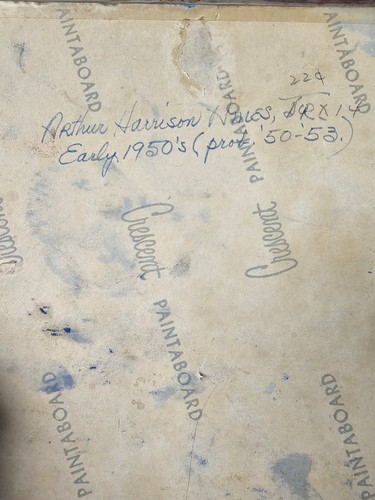 AINTABOARD
AINTABOARD
224
Arthur Harrison
Early 1950's (prob. '50-'53.)
PAINTABOARD
Crescent
Crescent
Crescent
PAINTABOARD
PAINTABOARD
PAINTABOARD